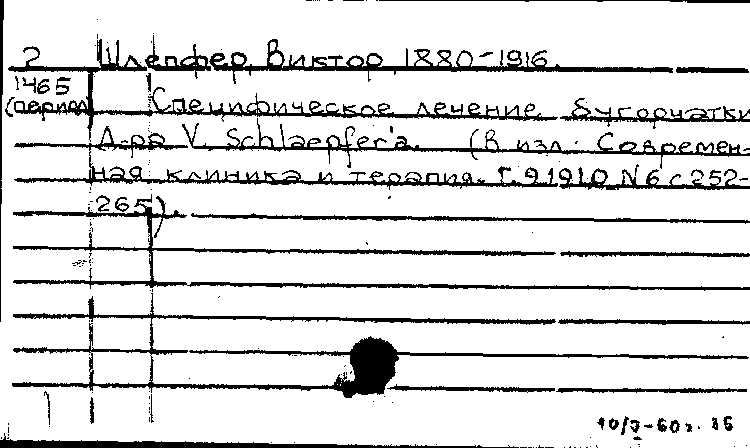 2 Шлепфер, Виктор, 1880-1916.
1465
(период) Специфическое лечение бугорчатки
Д-ра V. Schlaepfer'а. (В изл: Современ-
ная клиника и терапия. Г. 9.1910 N 6 с 252-
265).
10/3-60г. 36